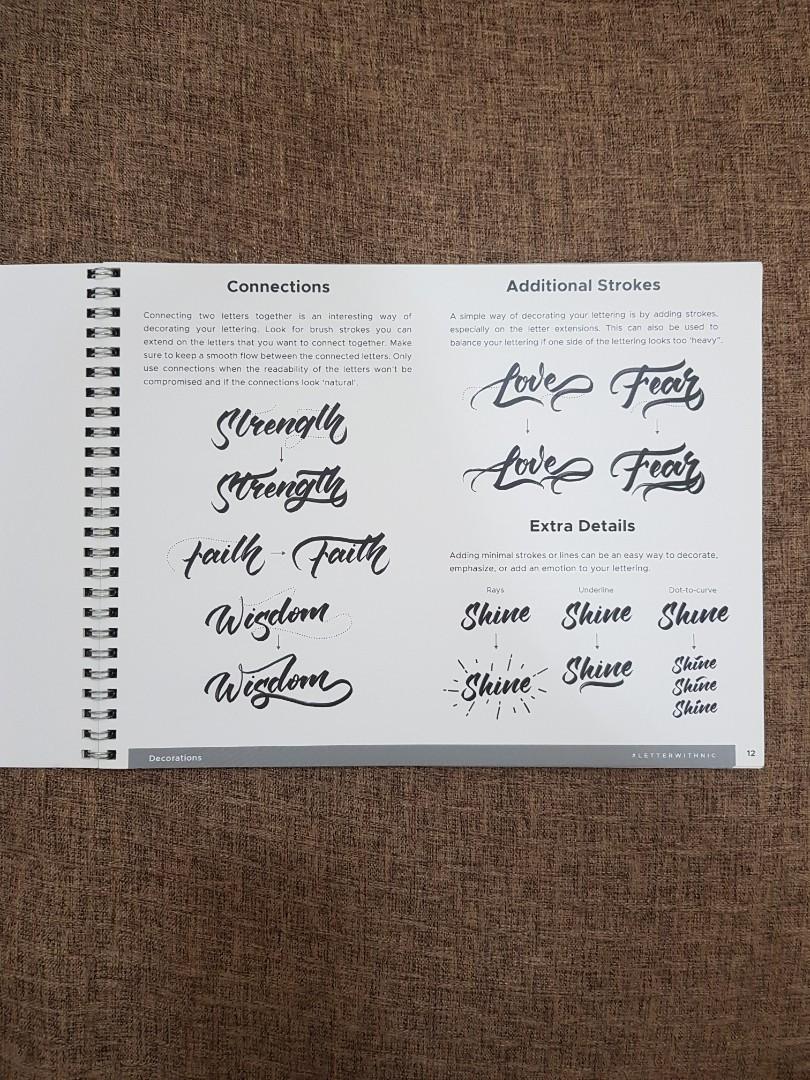 Connections
Connecting two letters together is an interesting way of
decorating your lettering. Look for brush strokes you can
extend on the letters that you want to connect together. Make
sure to keep a smooth flow between the connected letters. Only
use connections when the readability of the letters won't be
compromised and if the connections look 'natural'.
Strength
Strength
Faith → Faith
Wisdom
Wisdom
Additional Strokes
A simple way of decorating your lettering is by adding strokes,
especially on the letter extensions. This can also be used to
balance your lettering if one side of the lettering looks too 'heavy".
Love Fear
Love Fear
Extra Details
Adding minimal strokes or lines can be an easy way to decorate,
emphasize, or add an emotion to your lettering.
Rays Underline Dot-to-curve
Shine Shine Shıne
Shine Shine Shine
Shine
Shine
Decorations #LETTERWITHNIC 12